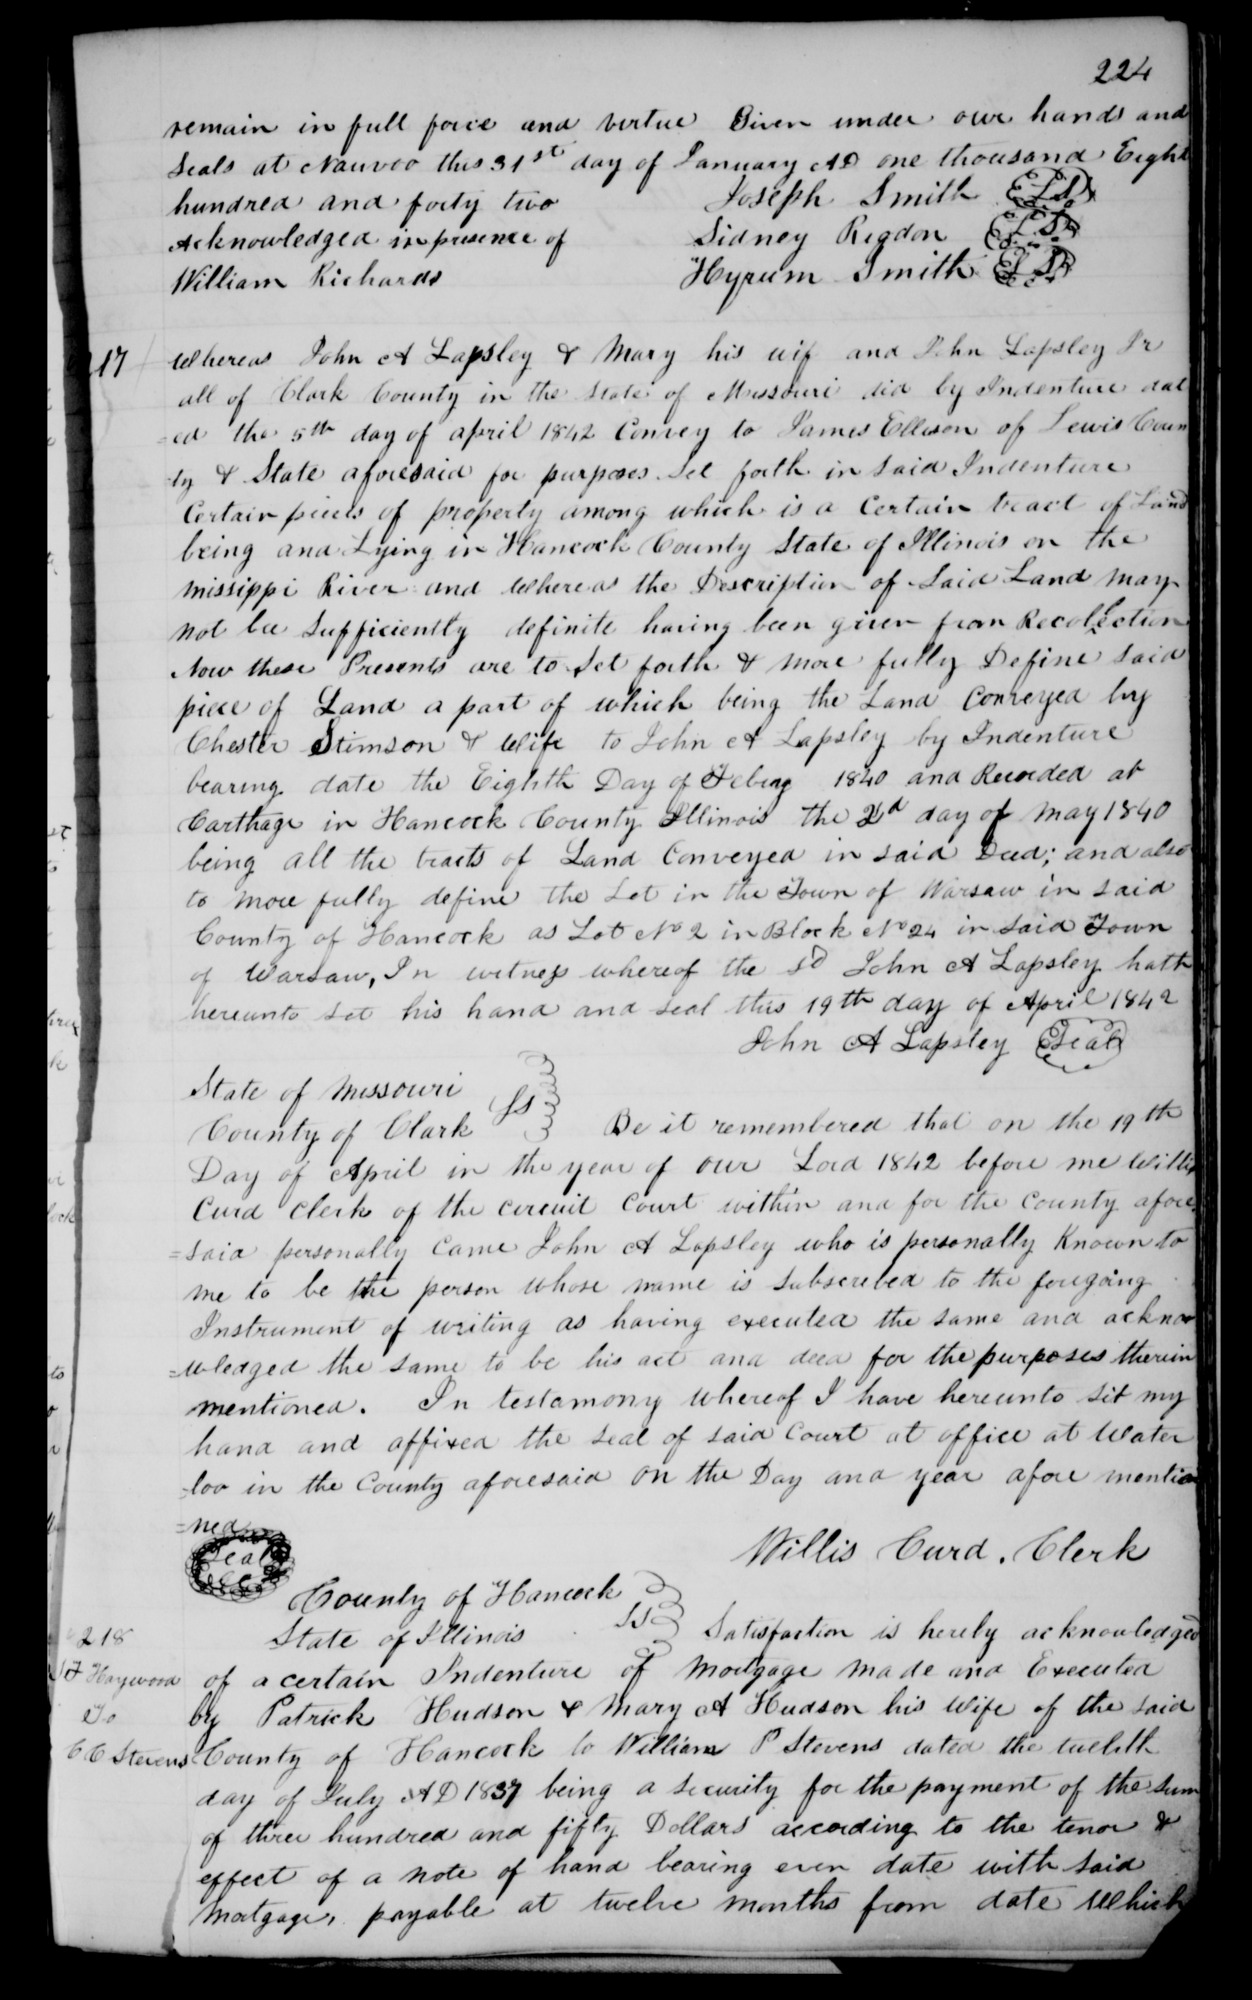 224
remain in full force and virtue Given under our hands and
Seals at Nauvoo this 31st day of January AD one thousand Eight
hundred and forty two Joseph Smith LS
Acknowledged in presence of Sidney Rigdon LS
William Richards Hyrum Smith LS
217 Whereas John A Lapsley & Mary his wif and John Lapsley Jr
all of Clark County in the State of Missouri did by Indenture dat
=ed the 5th day of april 1842 Convey to James Ellison of Lewis Coun
=ty & State aforesaid for purposes Set forth in said Indenture
Certain pieces of property among which is a Certain tract of Land
being and Lying in Hancock County State of Illinois on the
missippi River and Whereas the Description of Said Land may
not be Sufficiently definite having been given from Recollection
Now these Presents are to Set forth & more fully Define said
piece of Land a part of which being the Land Conveyed by
Chester Stimson & Wife to John A Lapsley by Indenture
bearing date the Eighth Day of Febuay 1840 and Recorded at
Carthage in Hancock County Illinois the 2d day of May 1840
being all the tracts of Land Conveyed in said Deed; and also
to more fully define the Lot in the Town of Warsaw in said
County of Hancock as Lot No 2 in Block No 24 in said Town
of Warsaw, In witness whereof the sd John A Lapsley hath
hereunto set his hand and seal this 19th day of April 1842
John A Lapsley Seal
State of Missouri
County of Clark SS Be it remembered that on the 19th
Day of April in the year of our Lord 1842 before me Willis
Curd Clerk of the circuit Court within and for the County afore
=said personally Came John A Lapsley who is personally Known to
me to be the person whose name is Subscribed to the foregoing
Instrument of writing as having executed the same and acknow
=wledged the same to be his act and deed for the purposes therein
mentioned. In testamony whereof I have hereunto Set my
hand and affixed the seal of said Court at office at Water
=loo in the County aforesaid on the Day and year afore mention
=ned
Seal Willis Curd. Clerk
County of Hancock
State of Illinois SS Satisfaction is hereby acknowledged
218
Haywood
To
C C Stevens
of a certain Indenture of Mortgage made and Executed
by Patrick Hudson & Mary A Hudson his Wife of the said
County of Hancock to William P Stevens dated the twelfth
day of July AD 1837 being a security for the payment of the sum
of three hundred and fifty Dollars according to the tenor &
effect of a note of hand bearing even date with said
Mortgage, payable at twelve months from date Which